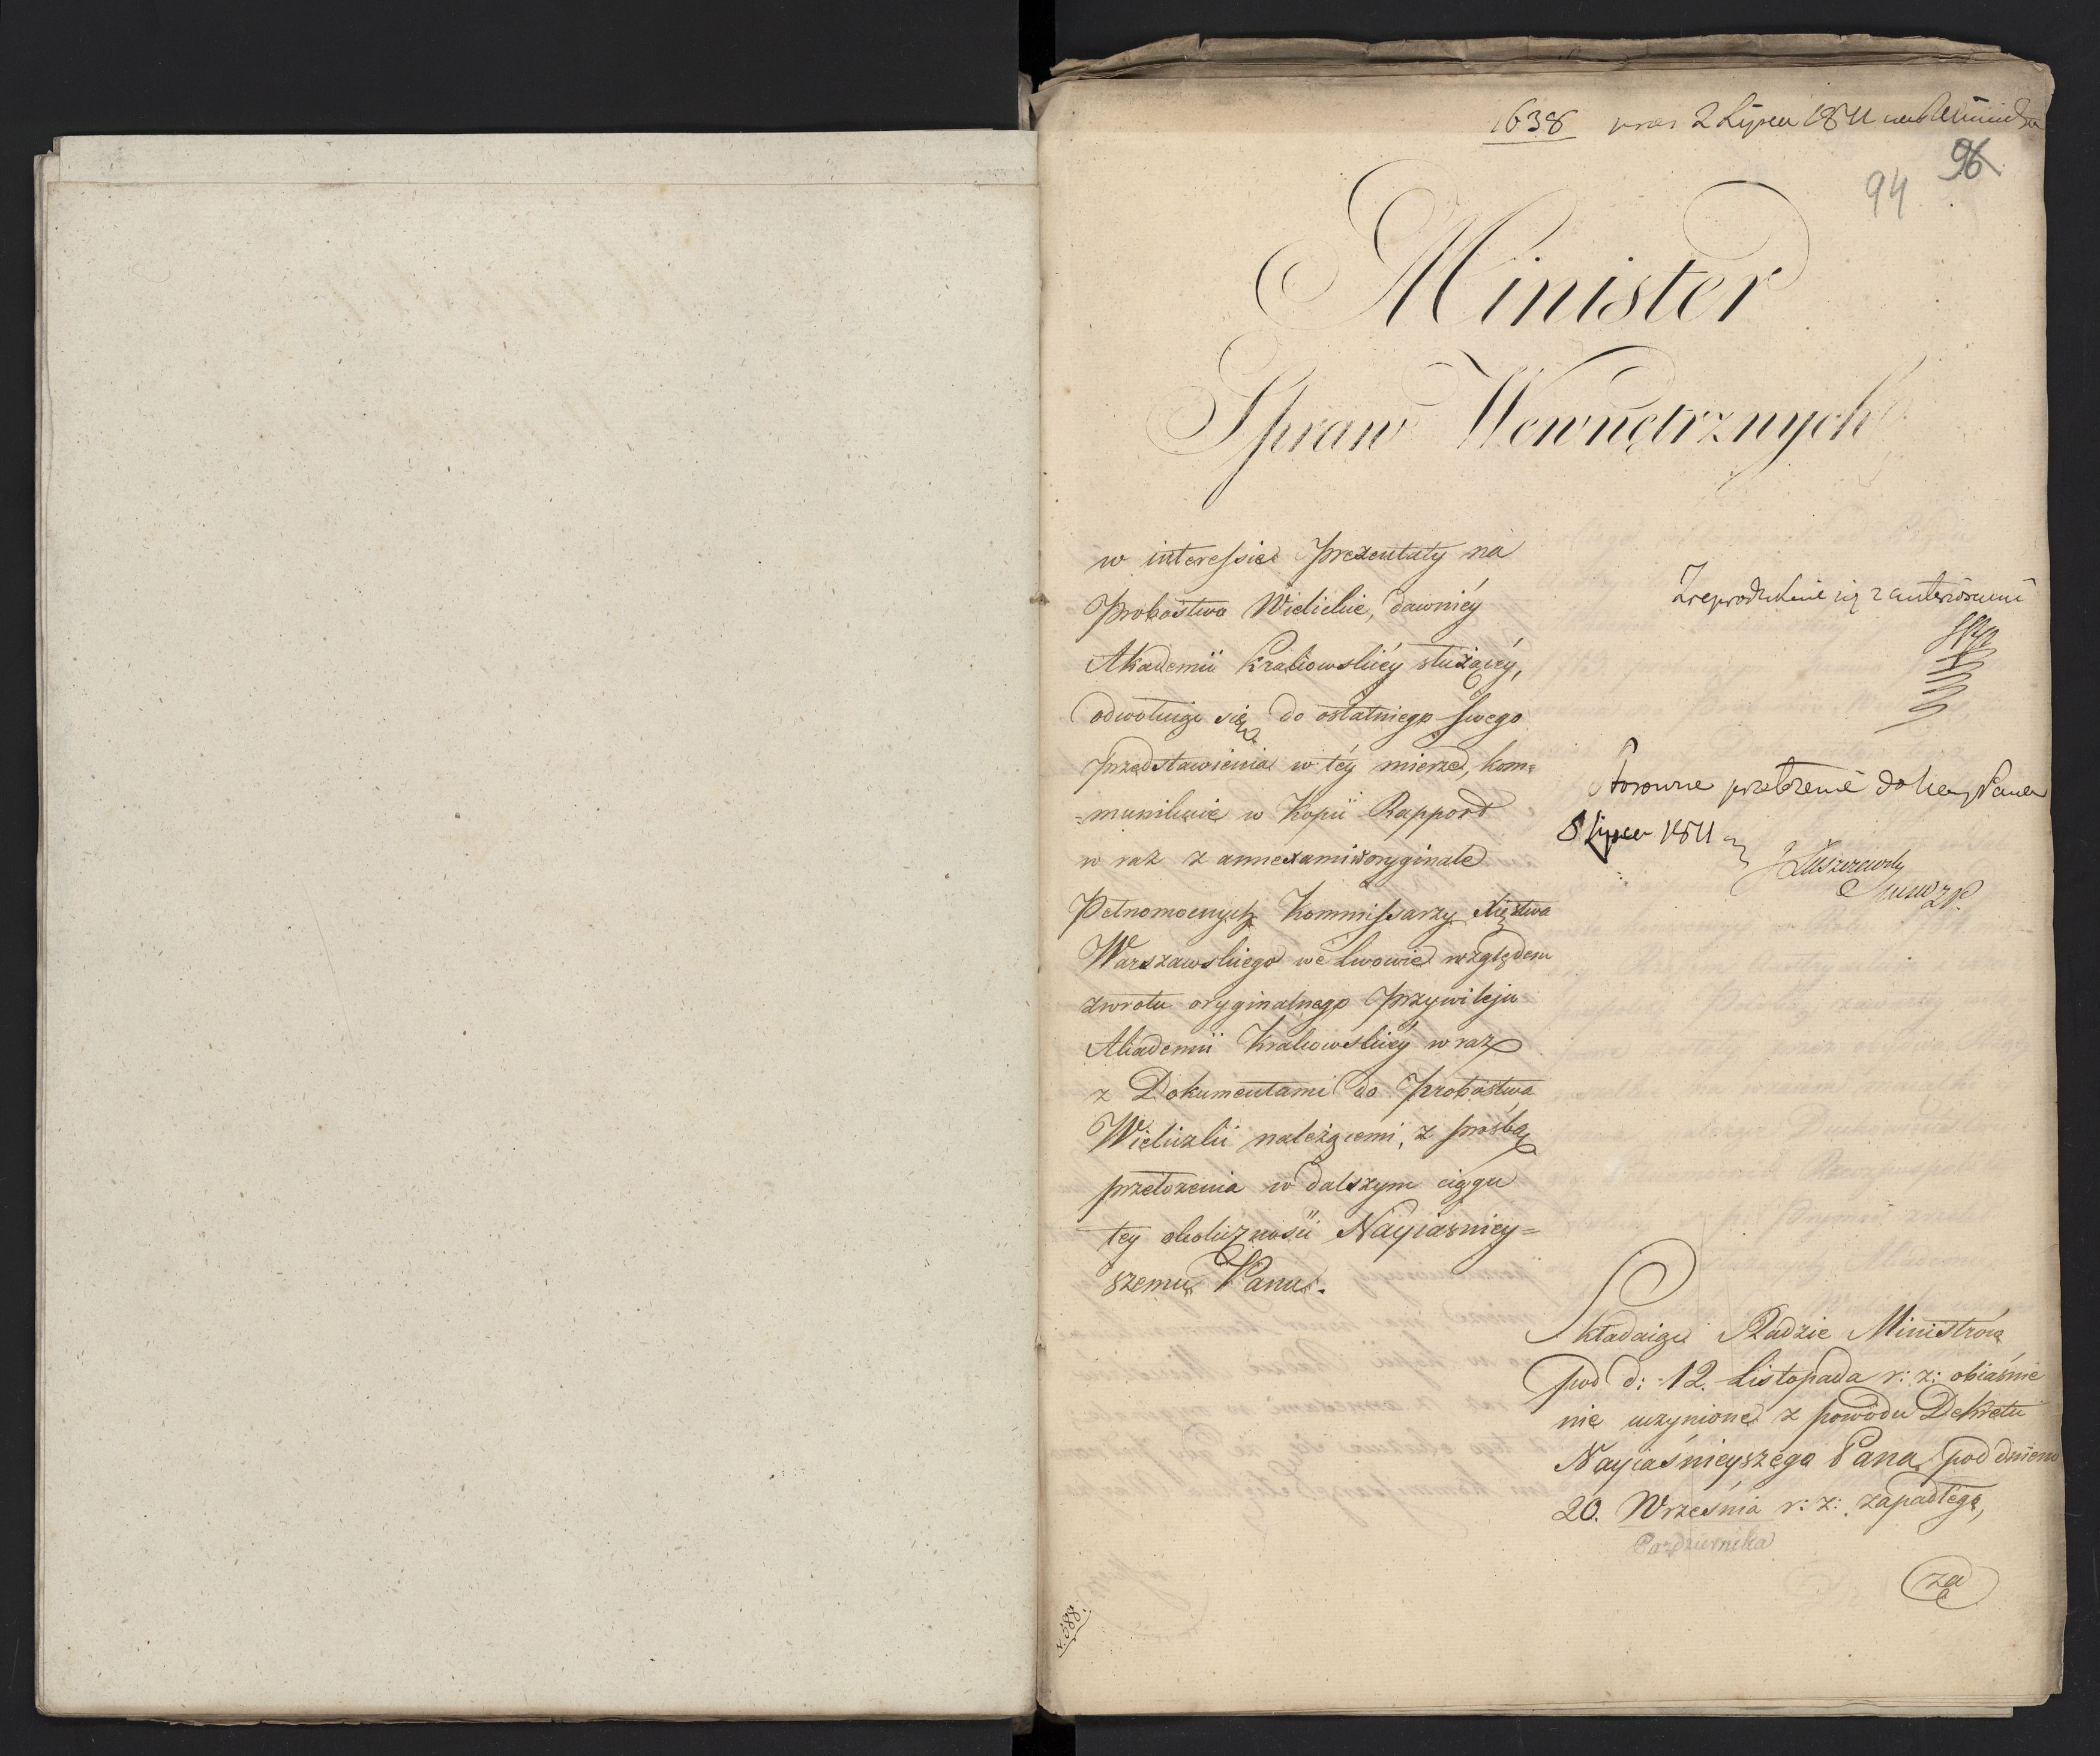 1638 2 Lipca 1811
96
94
Minister
Spraw Wewnętrznych
w interessie prezentaty na
Probostwo Wielickie, dawniéy
Akademii Krakowskiéy służącéy,
odwołuiąc się do ostatniego swego
przedstawienia w téy mierze, kom=
=munikuie w Kopii Rapport
w raz z annexami w oryginale
Pełnomocnych Kommissarzy Xięstwa
Warszawskiego we Lwowie względem
zwrotu oryginalnego Przywileju
Akademii Krakowskiéy wraz
z Dokumentami do Probostwa
Wieliczki należącemi, z prośbą
przełożenia w dalszym ciągu
tey okoliczności Nayiaśniey=
szemu Panu.
Zreprodukuie się z anteriorami
Stosowne przełożenie do Nay Pana
8 Lipca 1811
Łuszczewski
Składaiąc Radzie Ministrów
pod d: 12. Listopada r: z: obiaśnie
nie uczynione z powodu Dekretu
Nayiaśnieyszego Pana pod dniem
20. Września r: z: zapadłego,
Października
za
N. 588.